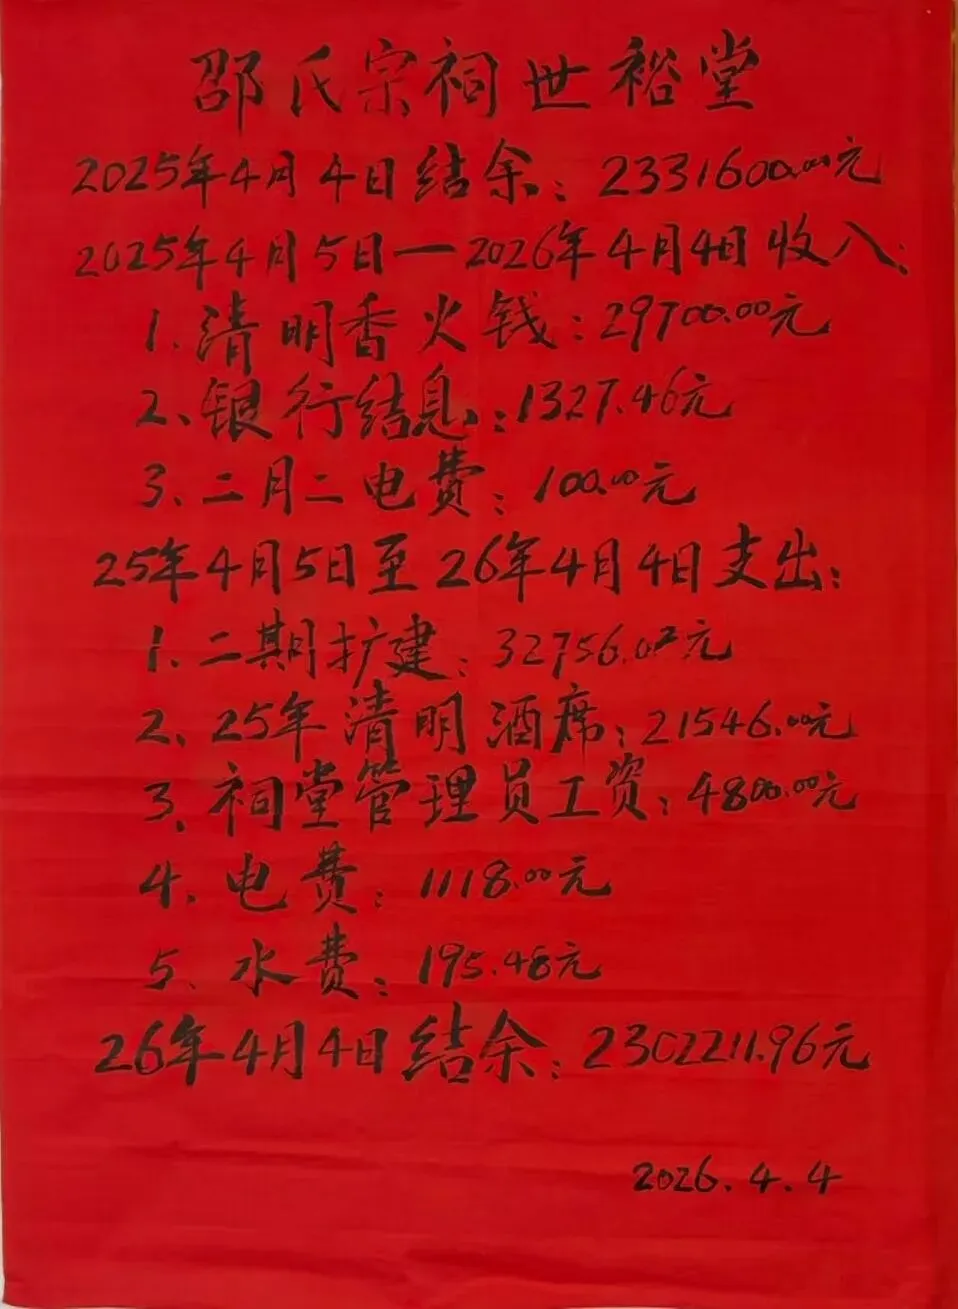 邵氏宗祠世裕堂
2025年4月4日结余：2331600.00元
2025年4月5日一2026年4月4日收入：
1.清明香火钱：29700.00元
2、银行结息：1327.46元
3、二月二电费：100.00元
25年4月5日至26年4月4日支出：
1.二期扩建：32756.02元
2、25年清明酒席：21546.00元
3、祠堂管理员工资：4800.00元
4、电费：1118.00元
5、水费：195.48元
26年4月4日结余：2302211.96元
2026.4.4